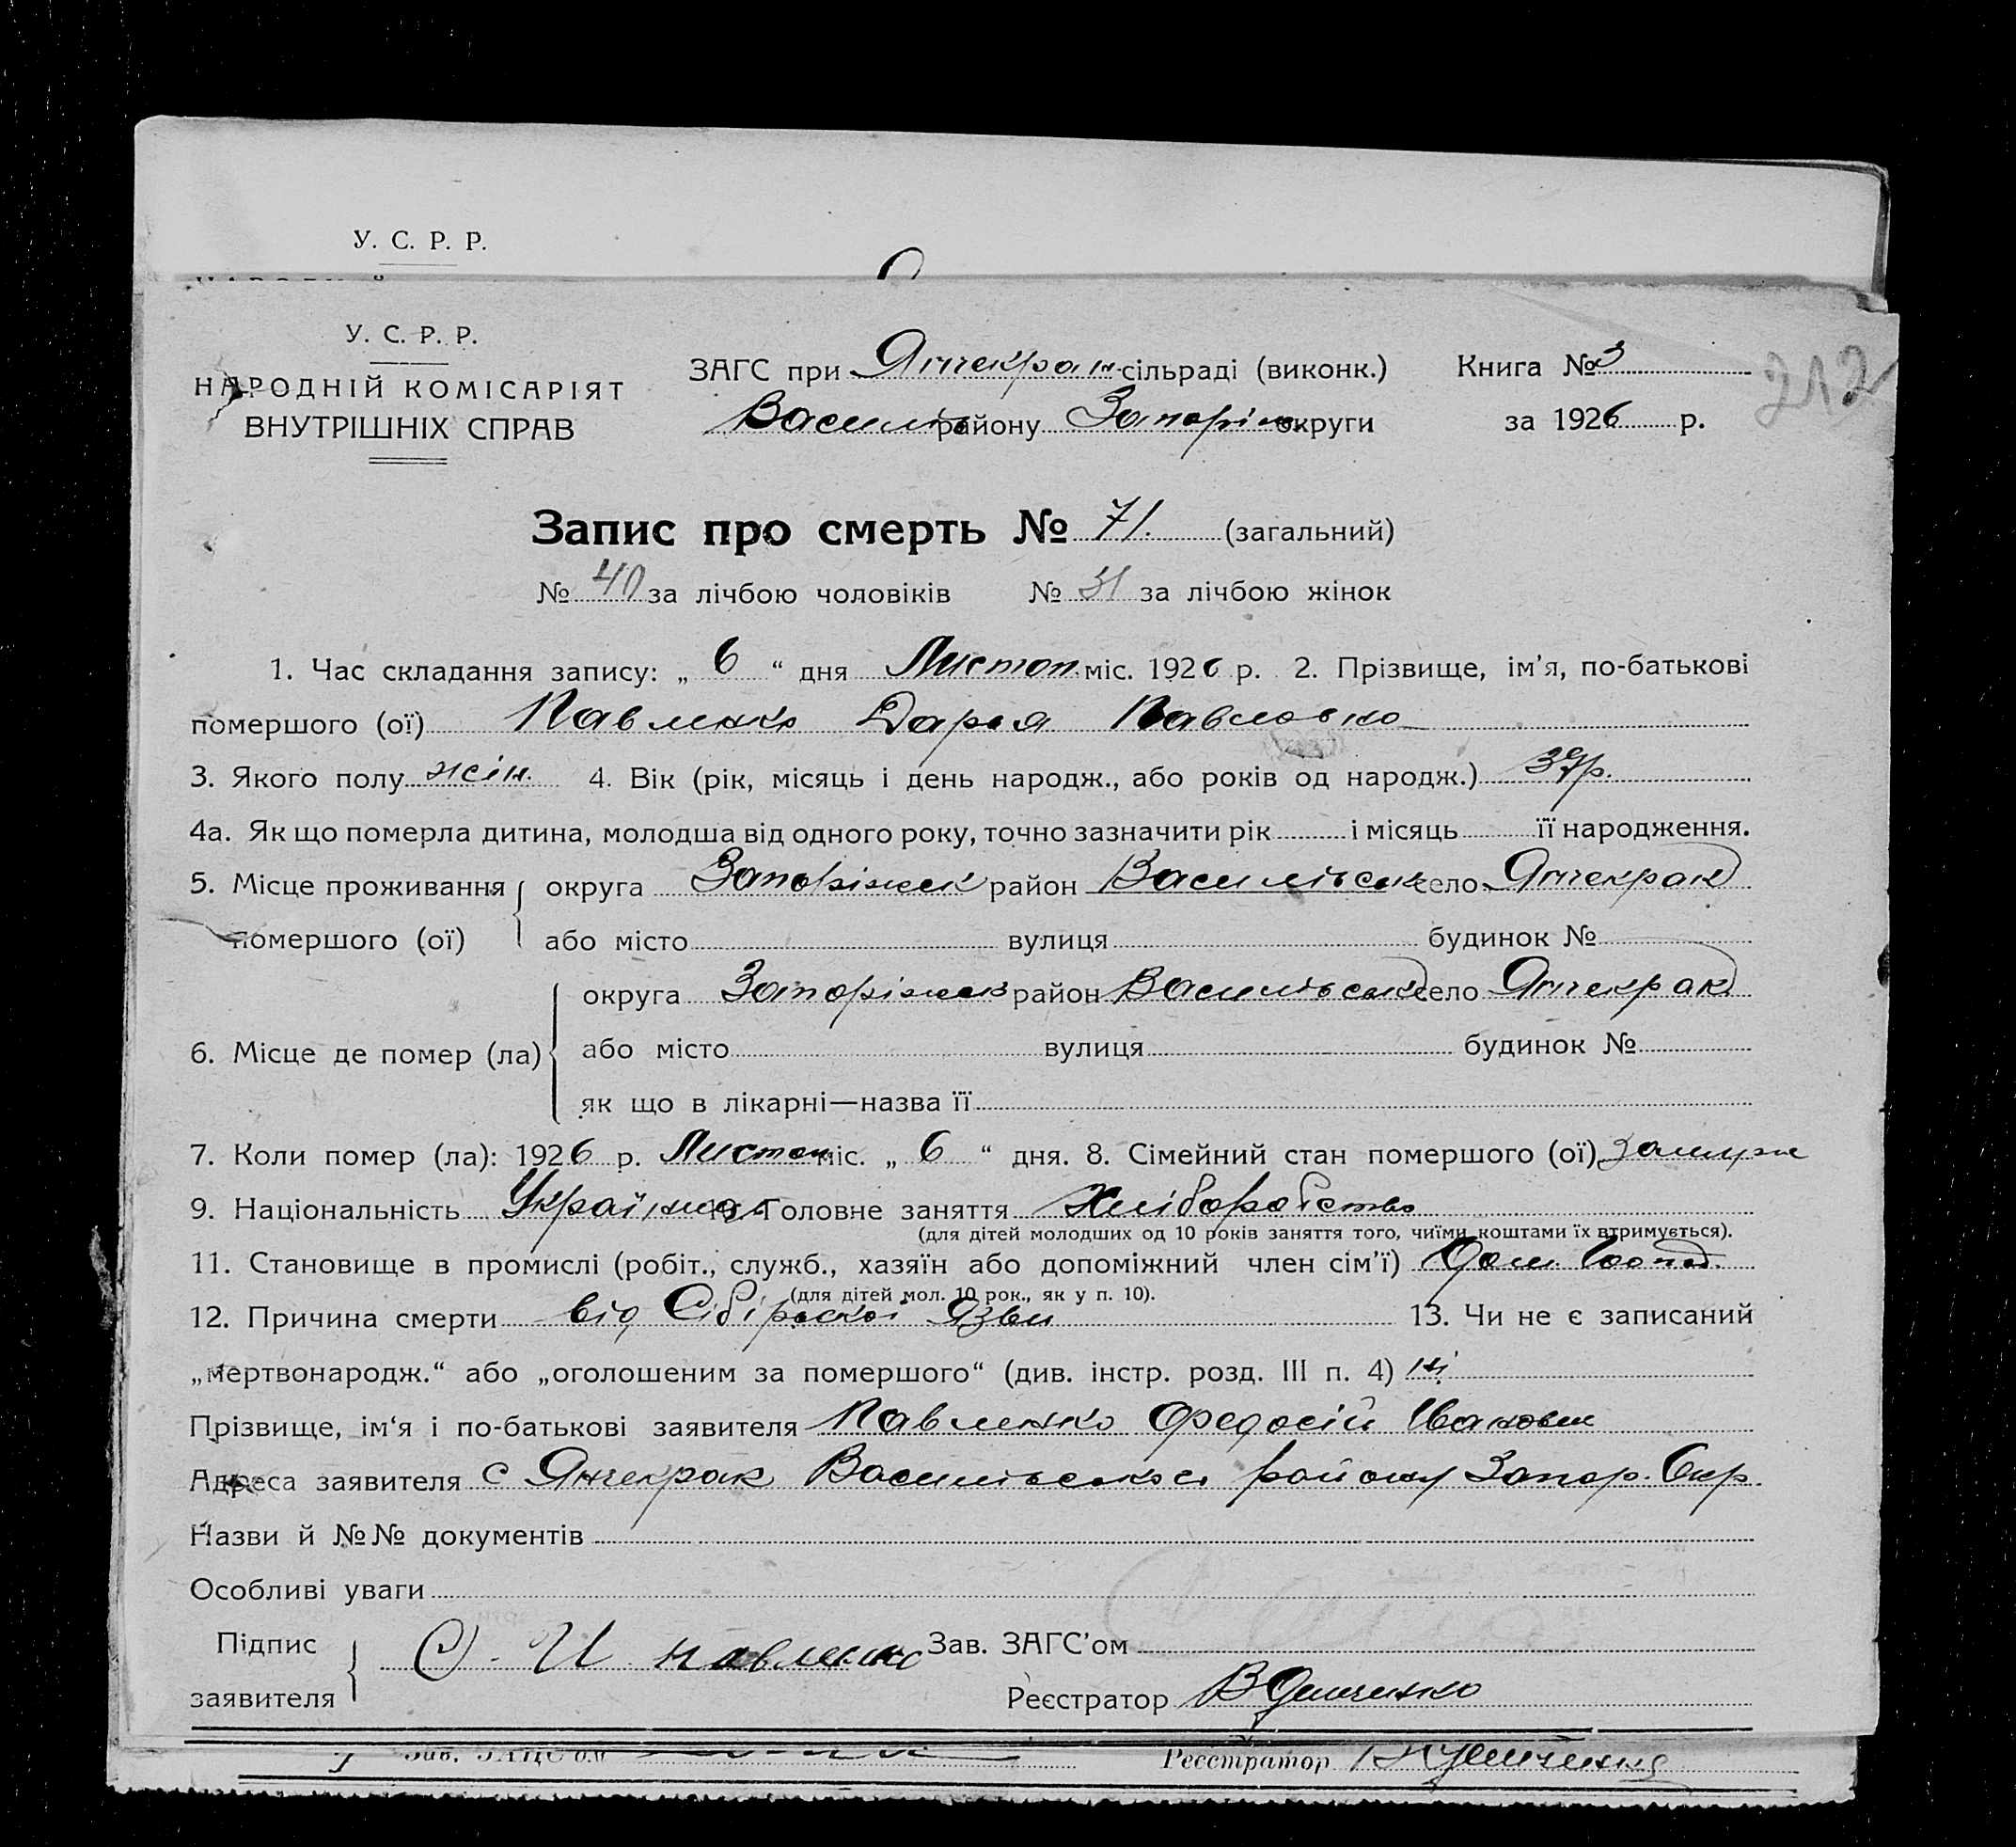 У. С. Р. Р.
У. С. Р. Р.
НАРОДНІЙ КОМІСАРІЯТ
ВНУТРІШНІХ СПРАВ
ЗАГС при Янчекрак. сільраді (виконк.) Книга № 3
212
Василів району Запоріж. округи за 1926 р.
Запис про смерть № 71. (загальний)
№ 40 за лічбою чоловіків № 31 за лічбою жінок
1. Час складання запису: „ 6 “ дня Листоп. міс. 1926 р. 2. Прізвище, ім’я, по-батькові
помершого (ої) Павленко Дарья Павловна
3. Якого полу жін. 4. Вік (рік, місяць і день народж., або років од народж.) 39р.
4а. Як що померла дитина, молодша від одного року, точно зазначити рік і місяць її народження.
5. Місце проживання округа Запоріжськ район Васильівськ село Янчекрак
помершого (ої) або місто вулиця будинок №
округа Запоріжськ район Васильівськ село Янчекрак
6. Місце де помер (ла) або місто вулиця будинок №
як що в лікарні—назва її
7. Коли помер (ла): 1926 р. Листоп. міс. „ 6 “ дня. 8. Сімейний стан помершого (ої) замуж
9. Національність Українка 10. Головне заняття Хліборобство
(для дітей молодших од 10 років заняття того, чиїми коштами їх втримується).
11. Становище в промислі (робіт., служб., хазяїн або допоміжний член сім’ї) Дом. Господ.
(для дітей мол. 10 рок., як у п. 10).
12. Причина смерти від Сібірської Язви 13. Чи не є записаний
„мертвонародж.“ або „оголошеним за помершого“ (див. інстр. розд. III п. 4) ні
Прізвище, ім‘я і по-батькові заявителя Павленко Федосій Іванович
Адреса заявителя с Янчекрак Васильівського району Запор. Окр.
Назви й №№ документів
Особливі уваги
Підпис
заявителя Ф. И Павленко Зав. ЗАГС’ом
Реєстратор В Демченко
Зав. ЗАГС'ом Реєстратор